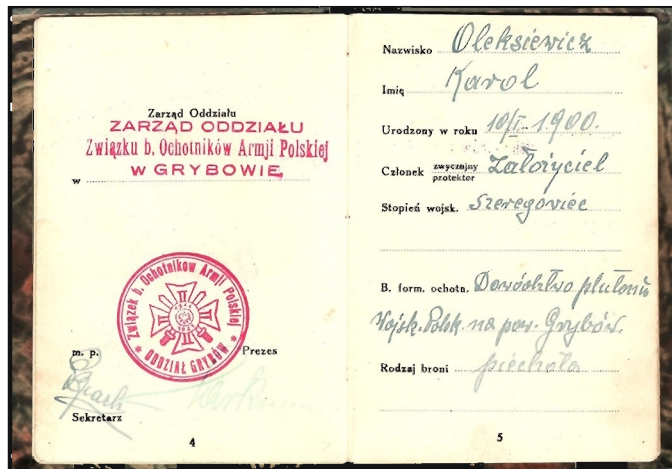 Zarząd Oddziału
ZARZĄD ODDZIAŁU
Związku b. Ochotników Armji Polskiej
W GRYBOWIE
w
Związek b. Ochotników Armji Polskiej
* ODDZIAŁ GRYBÓW *
m. p.
Prezes
Sekretarz
4
Nazwisko Oleksiewicz
Imię Karol
Urodzony w roku 10/I-1900.
Członek zwyczajny protektor Założyciel
Stopień wojsk. Szeregowiec
B. form. ochotn. Dowództwo plutonu
Wojsk. Polsk. na pow. Grybów.
Rodzaj broni piechota
5